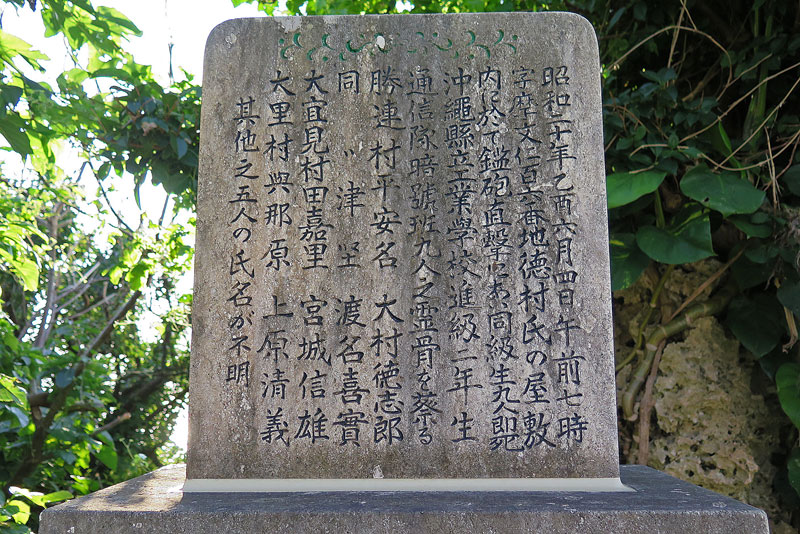 昭和二十年乙酉六月四日午前七時
字摩文仁百六番地徳村氏の屋敷
内に於て鑑砲直撃にあい同級生九人即死
沖縄縣立工業学校進級二年生
通信隊暗號班九人之霊骨を祭る
勝連村平安名 大村徳志郎
同〃津堅 渡名喜實
大宜見村田嘉里 宮城信雄
大里村與那原 上原清義
其他之五人の氏名が不明